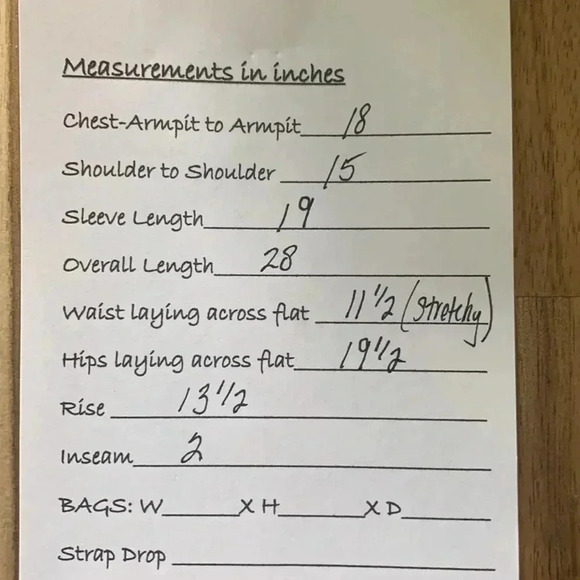 Measurements in inches
Chest-Armpit to Armpit 18
Shoulder to Shoulder 15
Sleeve Length 19
Overall Length 28
Waist laying across flat 11 1/2 (Stretchy)
Hips laying across flat 19 1/2
Rise 13 1/2
Inseam 2
BAGS: W______X H______X D______
Strap Drop